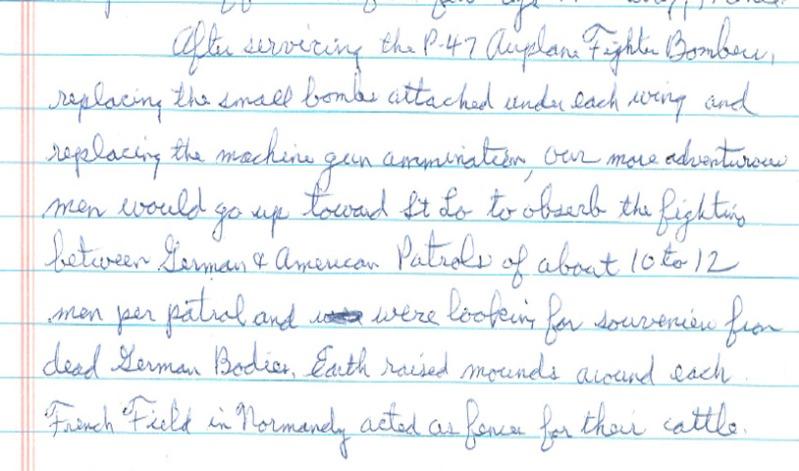 After servicing the P-47 Airplane Fighter Bombers,
replacing the small bombs attached under each wing and
replacing the machine gun ammination, our more adventurous
men would go up toward St Lo to obserb the fighting
between German & American Patrols of about 10 to 12
men per patrol and were looking for souveniers from
dead German Bodies. Earth raised mounds around each
French Field in Normandy acted as fences for their cattle.